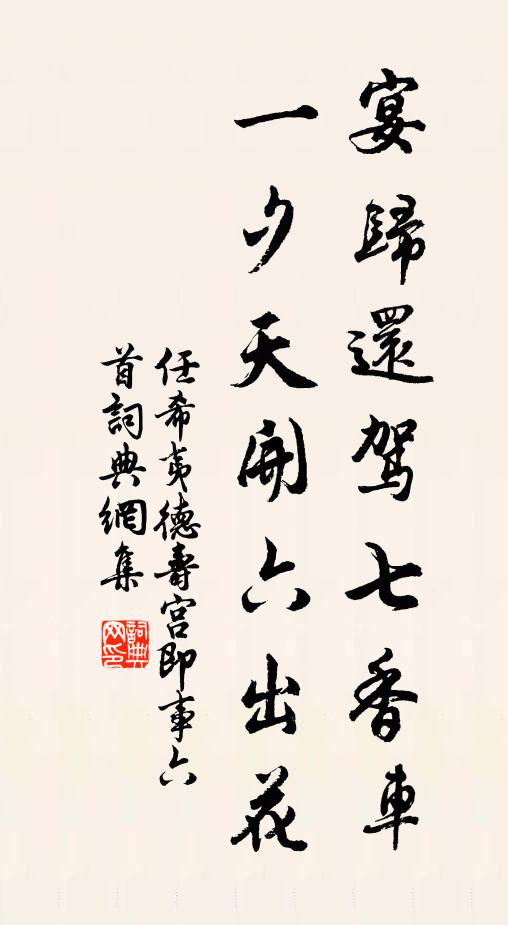 宴歸還駕七香車
一夕天開六出花
任希夷德壽宮即事六
首詞典網集
詞典
网印